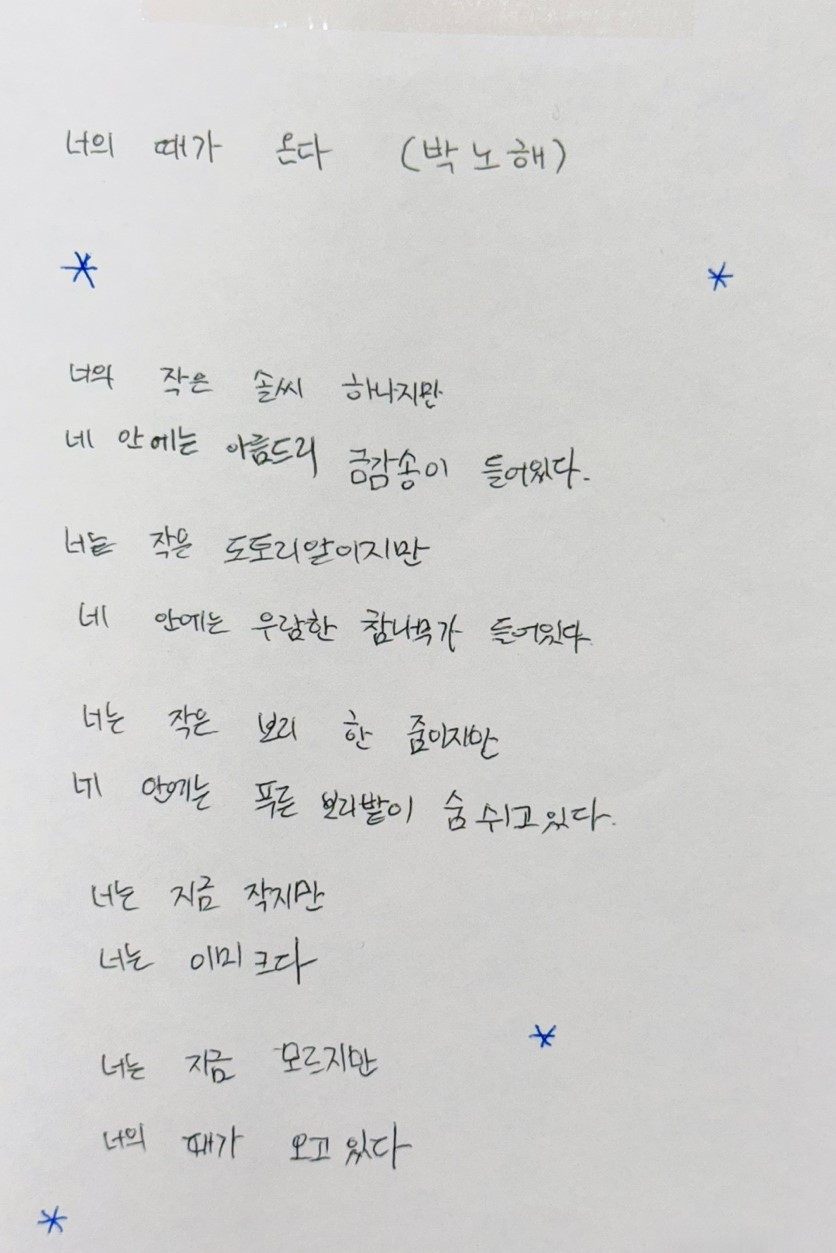 너의 때가 온다 (박노해)
너의 작은 솔씨 하나지만
네 안에는 아름드리 금감송이 들어있다.
너는 작은 도토리알이지만
네 안에는 우람한 참나무가 들어있다.
너는 작은 보리 한 줌이지만
네 안에는 푸른 보리밭이 숨 쉬고있다.
너는 지금 작지만
너는 이미 크다
너는 지금 모르지만
너의 때가 오고 있다